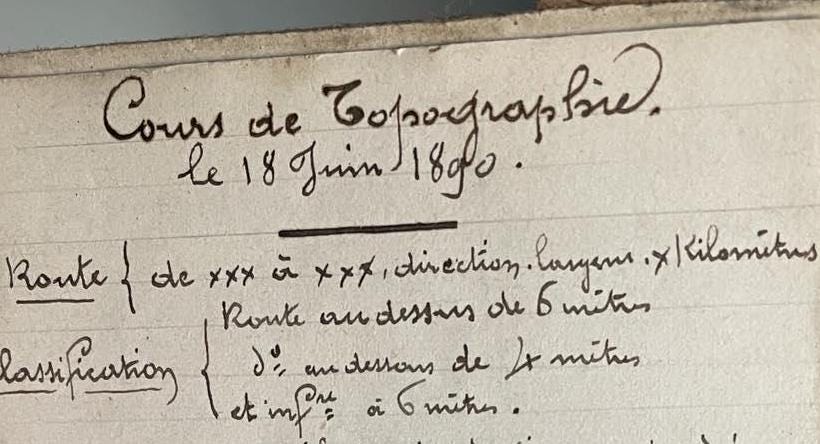 Cours de Topographie.
le 18 Juin 1890.
Route { de xxx à xxx, direction. largeur. x Kilomètres
lassification { Route au dessus de 6 mètres
dº au dessous de 4 mètres
et infre à 6 mètres.